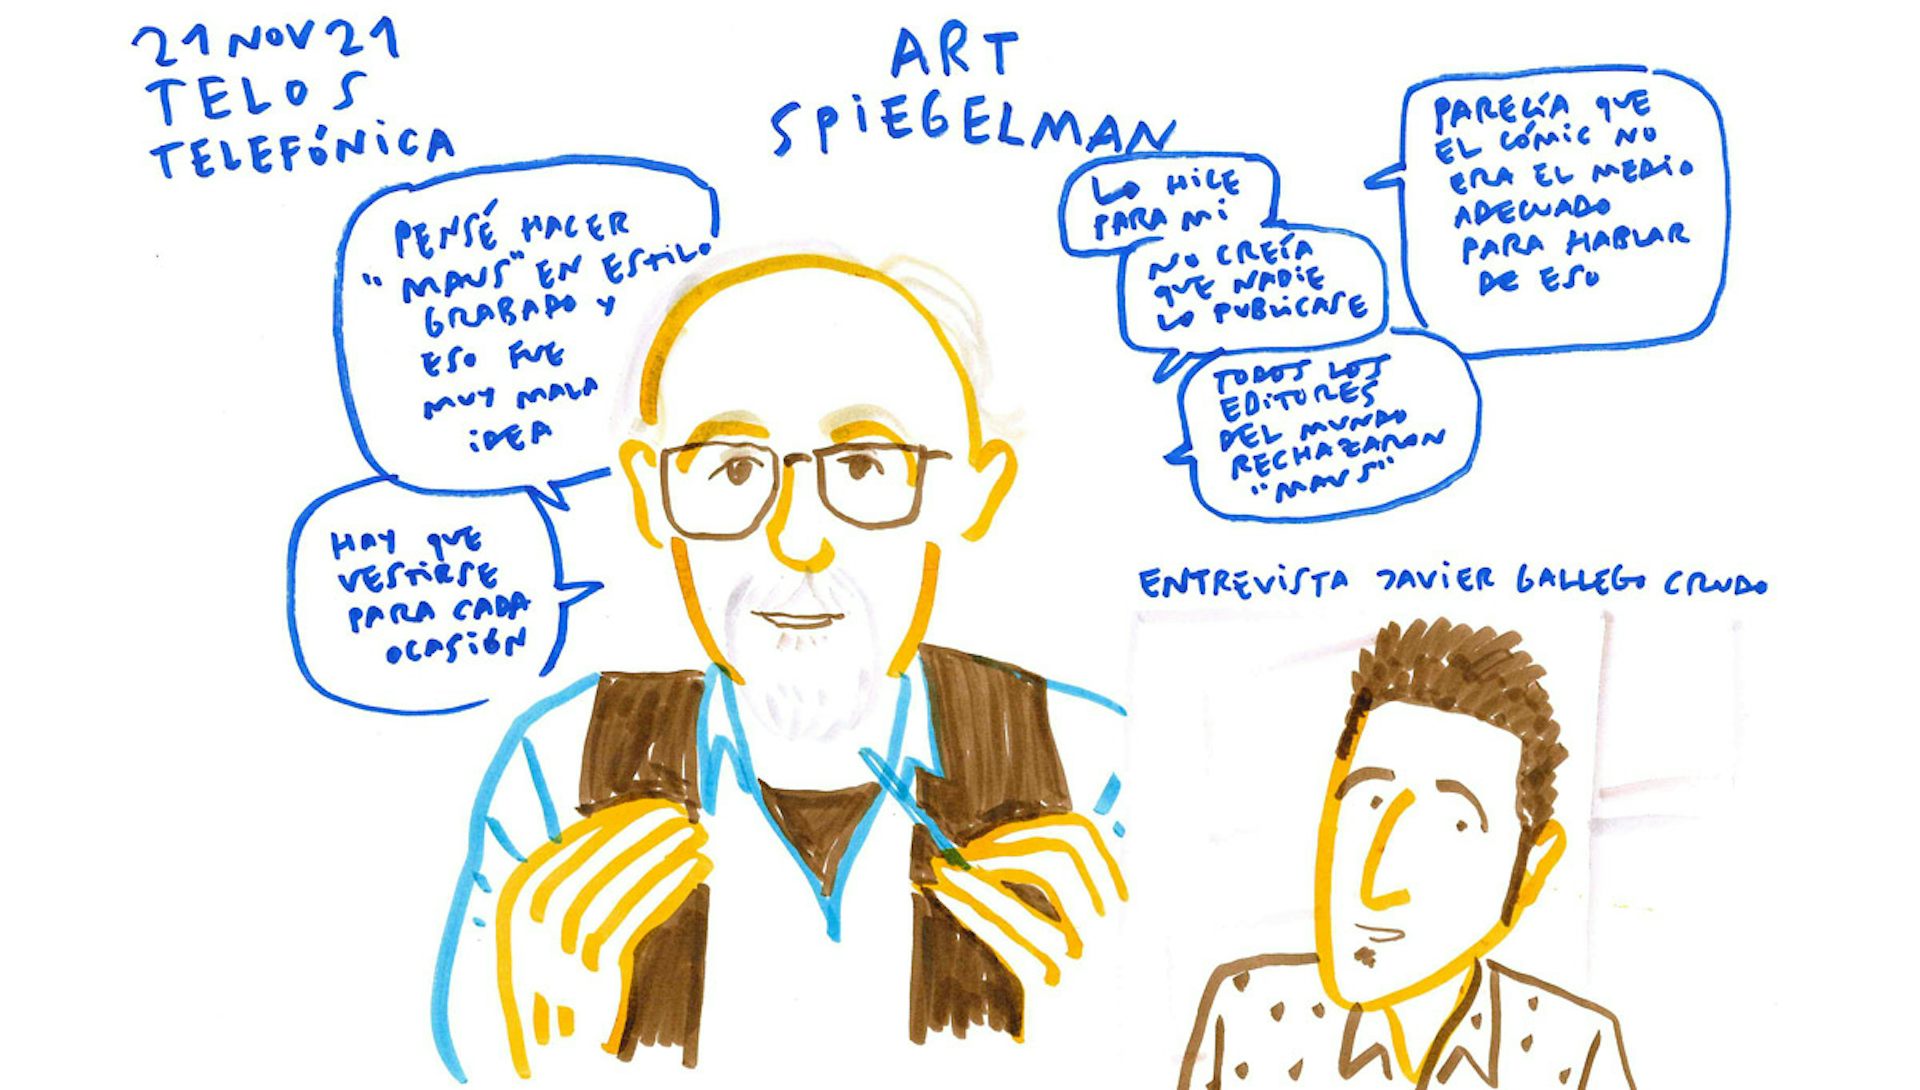 21 NOV 21
TELOS
TELEFÓNICA
ART
SPIEGELMAN
PENSÉ HACER
"MAUS" EN ESTILO
GRABADO Y
ESO FUE
MUY MALA
IDEA
HAY QUE
VESTIRSE
PARA CADA
OCASIÓN
LO HICE
PARA MI
NO CREÍA
QUE NADIE
LO PUBLICASE
TODOS LOS
EDITORES
DEL MUNDO
RECHAZARON
"MAUS"
PARECÍA QUE
EL CÓMIC NO
ERA EL MEDIO
ADECUADO
PARA HABLAR
DE ESO
ENTREVISTA JAVIER GALLEGO CRUDO